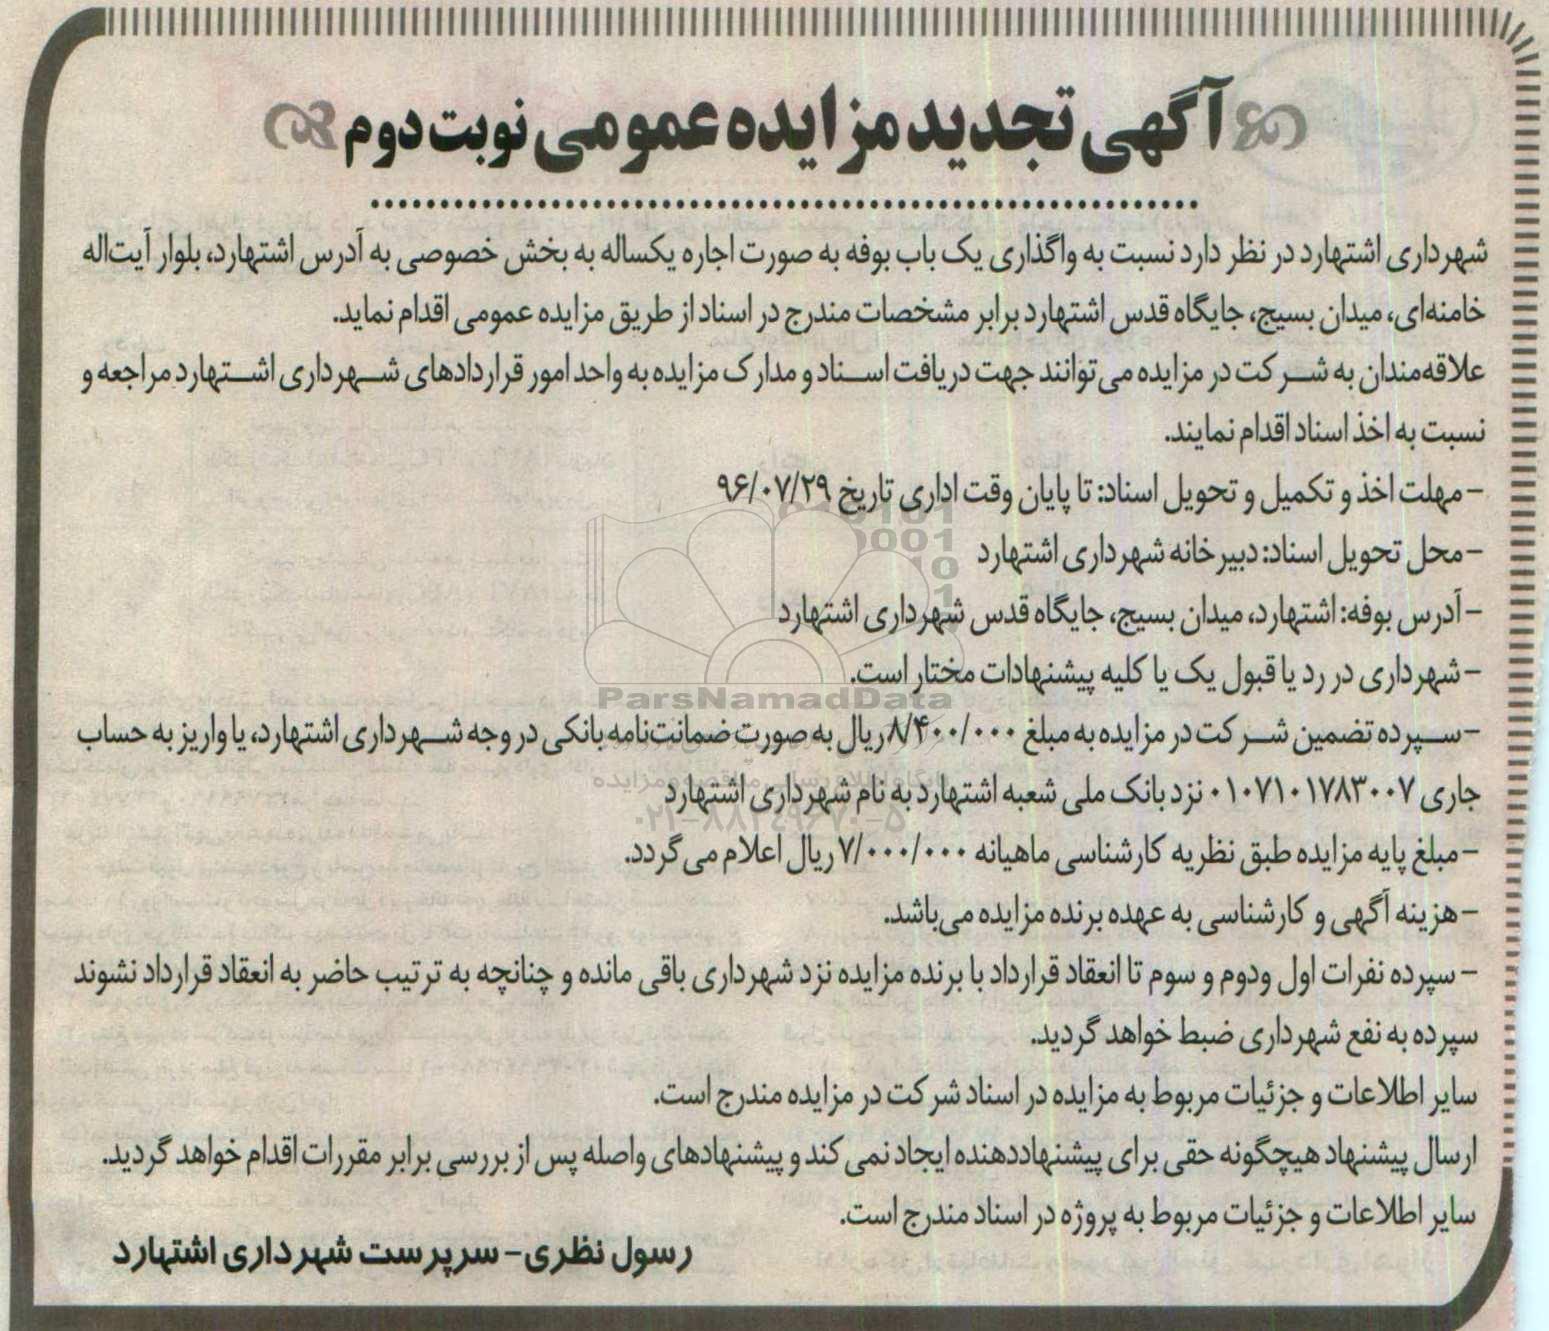 آگهی تجدید مزایده عمومی نوبت دوم
شهرداری اشتهارد در نظر دارد نسبت به واگذاری یک باب بوفه به صورت اجاره یکساله به بخش خصوصی به آدرس اشتهارد، بلوار آیت‌اله
خامنه‌ای، میدان بسیج، جایگاه قدس اشتهارد برابر مشخصات مندرج در اسناد از طریق مزایده عمومی اقدام نماید.
علاقه‌مندان به شرکت در مزایده می‌توانند جهت دریافت اسناد و مدارک مزایده به واحد امور قراردادهای شهرداری اشتهارد مراجعه و
نسبت به اخذ اسناد اقدام نمایند.
- مهلت اخذ و تکمیل و تحویل اسناد: تا پایان وقت اداری تاریخ ۹۶/۰۷/۲۹
- محل تحویل اسناد: دبیرخانه شهرداری اشتهارد
- آدرس بوفه: اشتهارد، میدان بسیج، جایگاه قدس شهرداری اشتهارد
- شهرداری در رد یا قبول یک یا کلیه پیشنهادات مختار است.
ParsNamadData
- سپرده تضمین شرکت در مزایده به مبلغ ۸/۴۰۰/۰۰۰ ریال به صورت ضمانت‌نامه بانکی در وجه شهرداری اشتهارد، یا واریز به حساب
جاری ۰۱۰۷۱۰۱۷۸۳۰۰۷ نزد بانک ملی شعبه اشتهارد به نام شهرداری اشتهارد
۰۲۱-۸۸۳۴۹۶۷۰-۵
- مبلغ پایه مزایده طبق نظریه کارشناسی ماهیانه ۷/۰۰۰/۰۰۰ ریال اعلام می‌گردد.
- هزینه آگهی و کارشناسی به عهده برنده مزایده می‌باشد.
- سپرده نفرات اول ودوم و سوم تا انعقاد قرارداد با برنده مزایده نزد شهرداری باقی مانده و چنانچه به ترتیب حاضر به انعقاد قرارداد نشوند
سپرده به نفع شهرداری ضبط خواهد گردید.
سایر اطلاعات و جزئیات مربوط به مزایده در اسناد شرکت در مزایده مندرج است.
ارسال پیشنهاد هیچگونه حقی برای پیشنهاددهنده ایجاد نمی کند و پیشنهادهای واصله پس از بررسی برابر مقررات اقدام خواهد گردید.
سایر اطلاعات و جزئیات مربوط به پروژه در اسناد مندرج است.
رسول نظری- سرپرست شهرداری اشتهارد